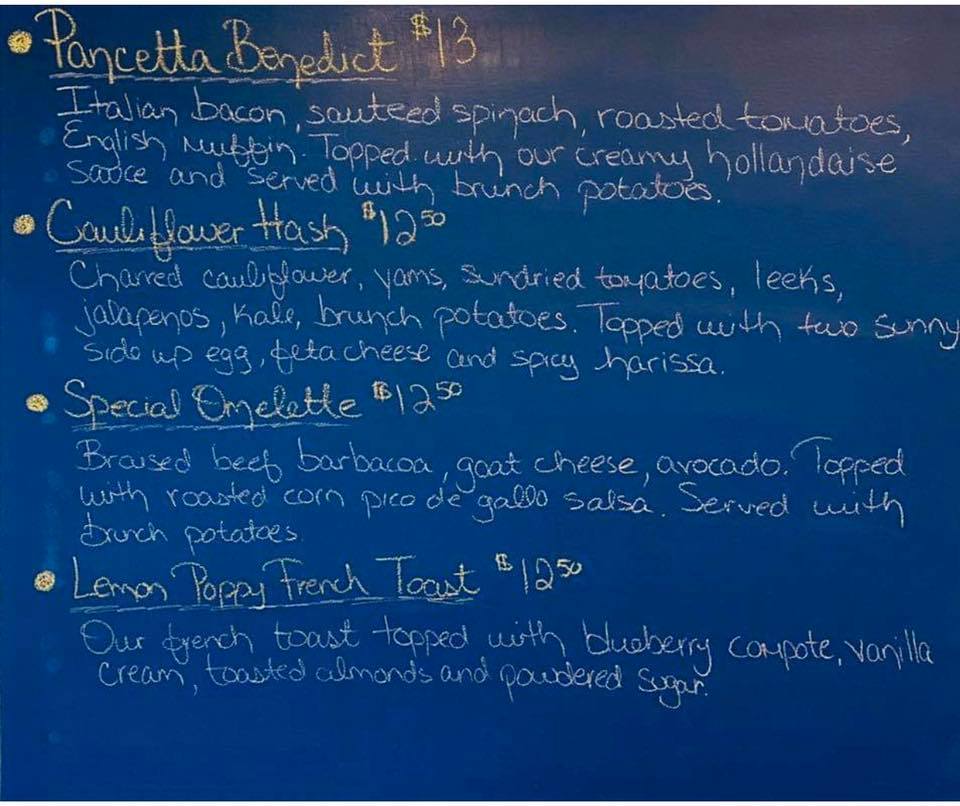 Pancetta Benedict $13
Italian bacon, sauteed spinach, roasted tomatoes,
English Muffin. Topped with our creamy hollandaise
Sauce and served with brunch potatoes.
Cauliflower Hash $12.50
Charred cauliflower, yams, sundried tomatoes, leeks,
jalapenos, kale, brunch potatoes. Topped with two sunny
side up egg, feta cheese and spicy harissa.
Special Omelette $12.50
Braised beef barbacoa, goat cheese, avocado. Topped
with roasted corn pico de gallo salsa. Served with
brunch potatoes.
Lemon Poppy French Toast $12.50
Our french toast topped with blueberry compote, vanilla
cream, toasted almonds and powdered sugar.